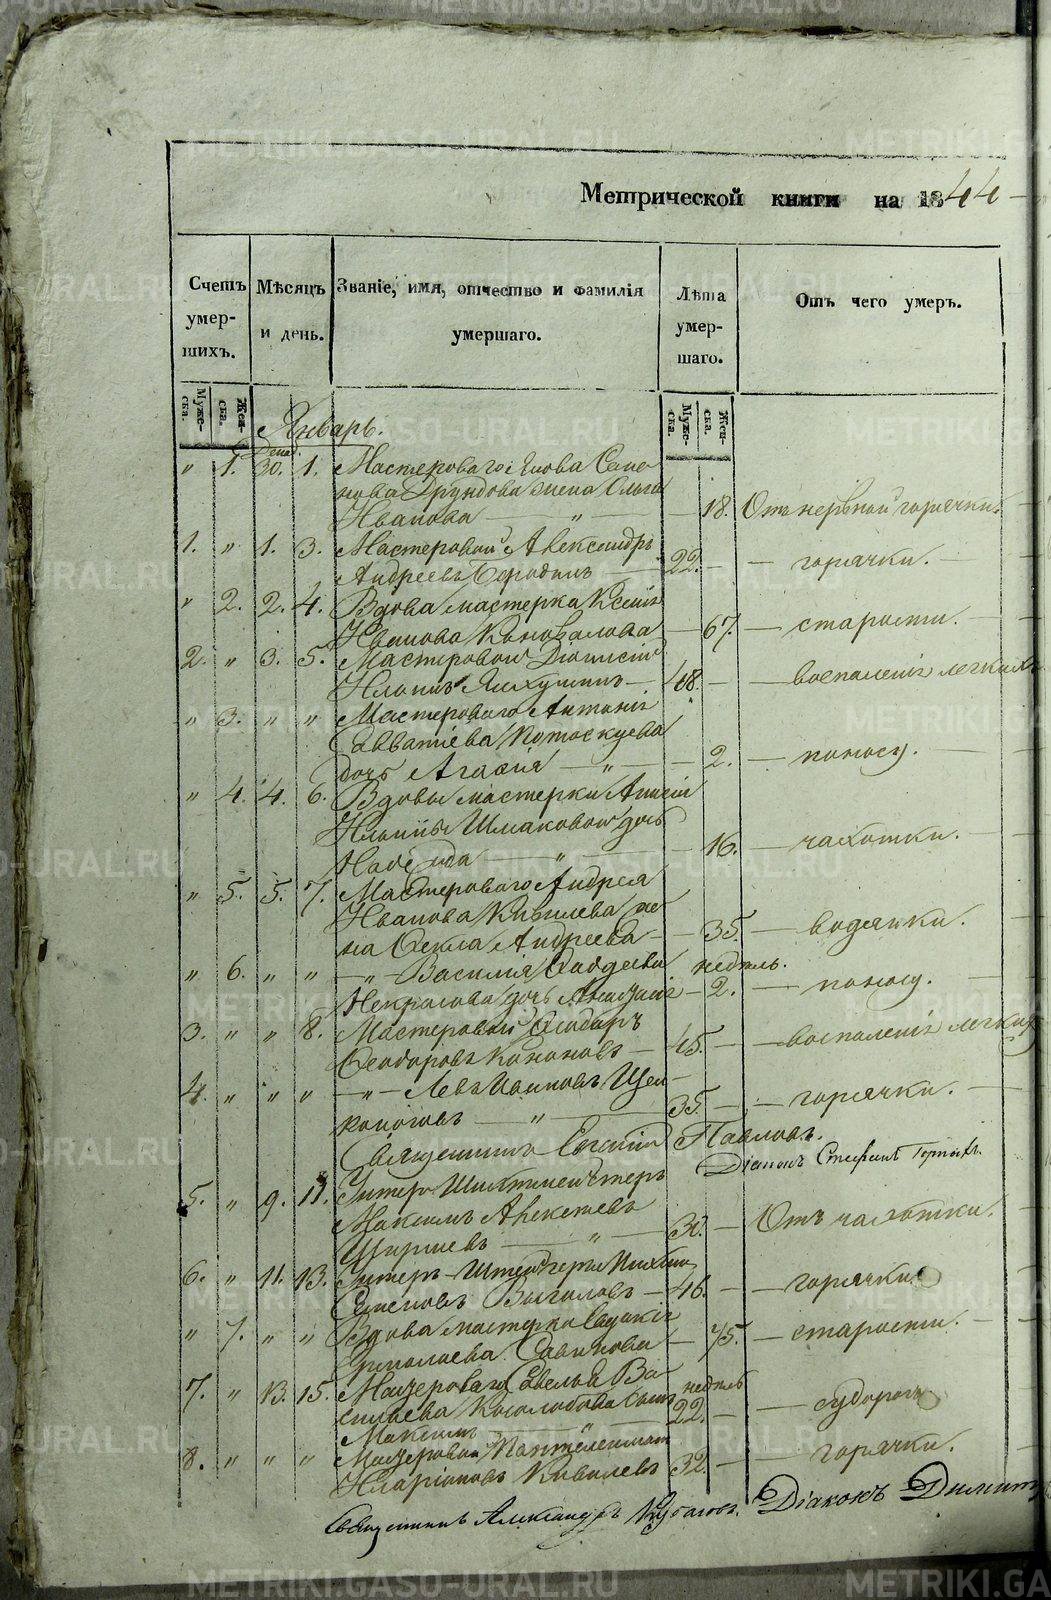 METRIKI.GASO-URAL.RU
Метрической книги на 1844
Счетъ умер-шихъ.
Мѣсяцъ и день.
Званіе, имя, отчество и фамилія умершаго.
Лѣта умер-шаго.
Отъ чего умеръ.
Муже-ска.
Жен-ска.
Муже-ска.
Жен-ска.
Январь.
" 1. 30. 1. Мастероваго Якова
жена Ольга
Иванова — " — 18. Отъ нервной горячки
1. " 1. 3. Мастеровой Александръ
Андреевъ Бородинъ — 22. — горячки.
" 2. 2. 4. Вдова мастерка Ксенія
Иванова Коновалова — 67. — старости.
2. " 3. 5. Мастеровой Діонисій
Ильинъ — 48. — воспаленія легкихъ
" 3. " " Мастероваго Антонія
Савватіева Потоскуева
дочь Агафія — " — 2. — поносу.
" 4. 4. 6. Вдовы мастерки
Ильиной Шмаковой дочь
Надежда " — 16. — чахотки.
" 5. 5. 7. Мастероваго Андрея
Иванова Кивилева же-
на Фекла Андреева — 35. — водянки.
" 6. " " — " — Василія Фадѣева недѣль.
Некрасова дочь Анастасія — 2. — поносу.
3. " " 8. Мастеровой Феодоръ
Феодоровъ Кононовъ — 45. — воспаленія легкихъ
4. " " " — " — Левъ Ивановъ Щел-
коноговъ — " — 35. — горячки.
Священникъ Евгеній Павловъ.
Діаконъ Стефанъ
5. " 9. 11. Унтеръ-Шихтмейстеръ
Максимъ Алексѣевъ
Ширяевъ — " — 30. — Отъ чахотки.
6. " 11. 13. Унтеръ-Штейгеръ
Семеновъ — 46. — горячки.
" 7. " " Вдова мастерка Евдокія
Ермолаева Савинова — 75. — старости.
7. " 13. 15. Мастероваго Савелья Ва-
сильева Косолобова сынъ недѣль
Максимъ " 22. — судороги.
8. " " " Мастеровой Пантелеимонъ
Иларіоновъ Кивилевъ 32. — горячки.
Священникъ Александръ Діаконъ
METRIKI.GASO-URAL.RU